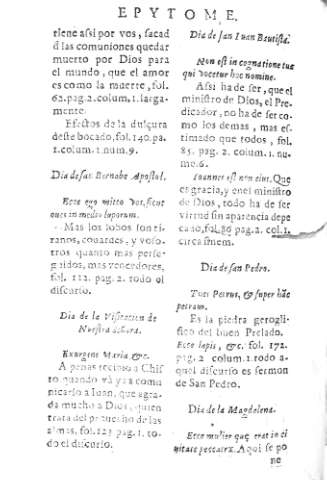 EPYTOME.
tiene assi por vos, sacad
d̃ las comuniones quedar
muerto por Dios para
el mundo, que el amor
es como la muerte, fol.
62. pag. 2. colum. 1. larga-
mente.
Efectos de la dulçura
deste bocado, fol. 140. pa.
1. colum. 1. num. 9.
Dia de san Bernabe Apostol.
Ecce ego mitto vos, sicut
oues in medio luporum.
Mas los lobos son ti-
ranos, couardes, y voso-
tros quanto mas perse-
guidos, mas vencedores,
fol. 112. pag. 2. todo el
discurso.
Dia de la Visitacion de
Nuestra señora.
Exurgens Maria &c.
A penas recibio a Chis
to quando và ya a comu
nicarlo a Iuan, que agra-
da mucho a Dios, quien
trata del prouecho de las
almas, fol. 123 pag. 1. to-
do el discurso.
Dia de san Iuan Bautista.
Non est in cognatione tua
qui vocetur hac nomine.
Assi ha de ser, que el
ministro de Dios, el Pre
dicador, no ha de ser co-
mo los demas, mas es-
timado que todos, fol.
85. pag. 2. colum. 1. nu-
me. 6.
Ioannes est nomen eius. Que
es gracia, y en el ministro
de Dios, todo ha de ser
virtud sin aparencia de pe
cado, fol. 86 pag. 2. col. 1.
Dia de san Pedro.
Tu es Petrus, & super hãc
petram.
Es la piedra gerogli-
fico del buen Prelado.
Ecce lapis, &c. fol. 172.
pag. 2 colum. 1. todo a-
quel discurso es sermon
de San Pedro.
Dia de la Magdalena.
Ecce mulier quę erat in ci
uitate peccatrx. Aqui se po
ne